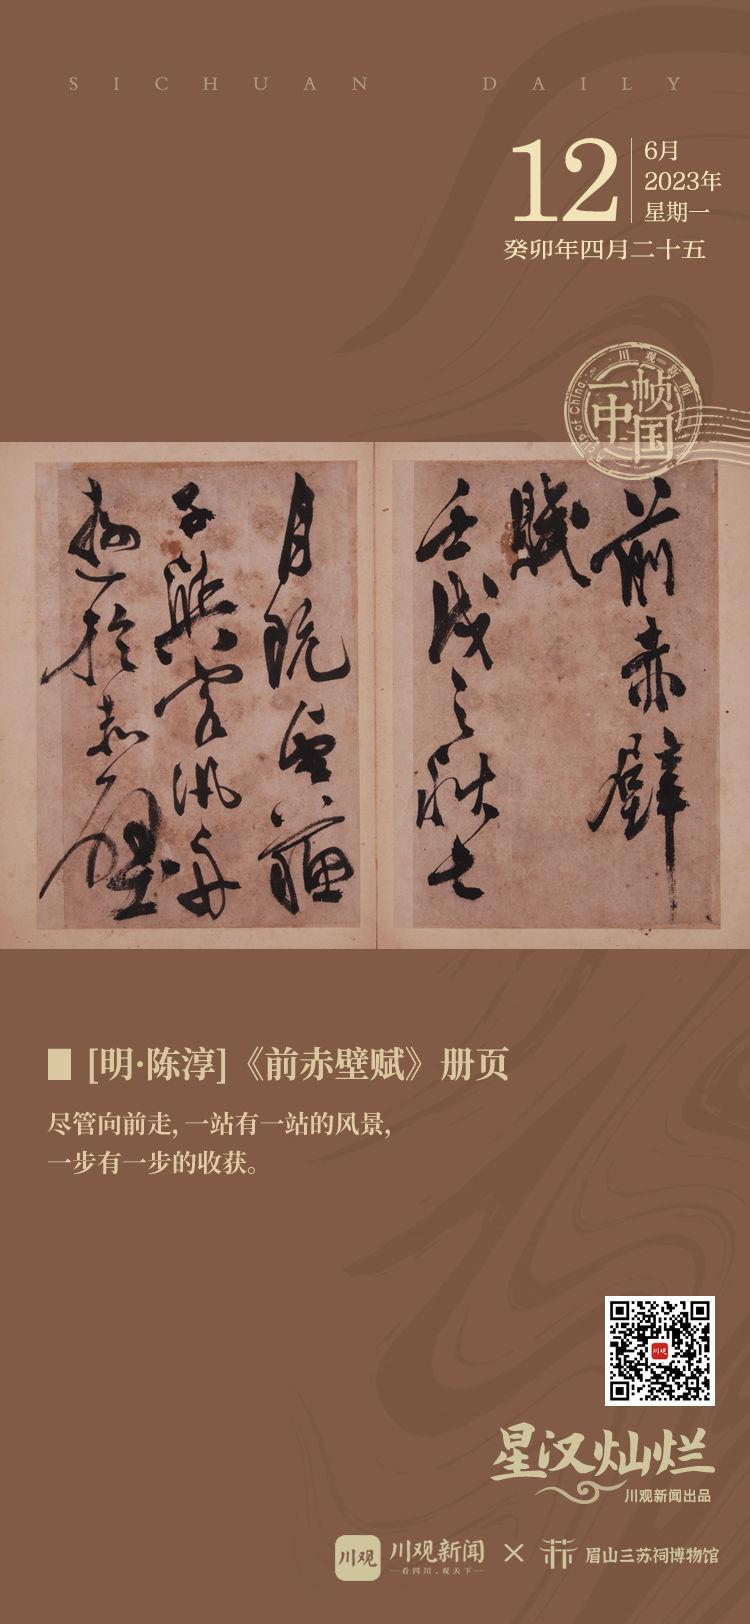 SICHUAN DAILY
12
6月
2023年
星期一
癸卯年四月二十五
川观新闻
一帧
中国
of China
前赤壁
賦
壬戌之秋七
月既望蘇
子與客汎舟
遊於赤壁
[明·陈淳]《前赤壁赋》册页
尽管向前走, 一站有一站的风景,
一步有一步的收获。
川观
星汉灿烂
川观新闻出品
川观 川观新闻 × 眉山三苏祠博物馆
—看四川，观天下—